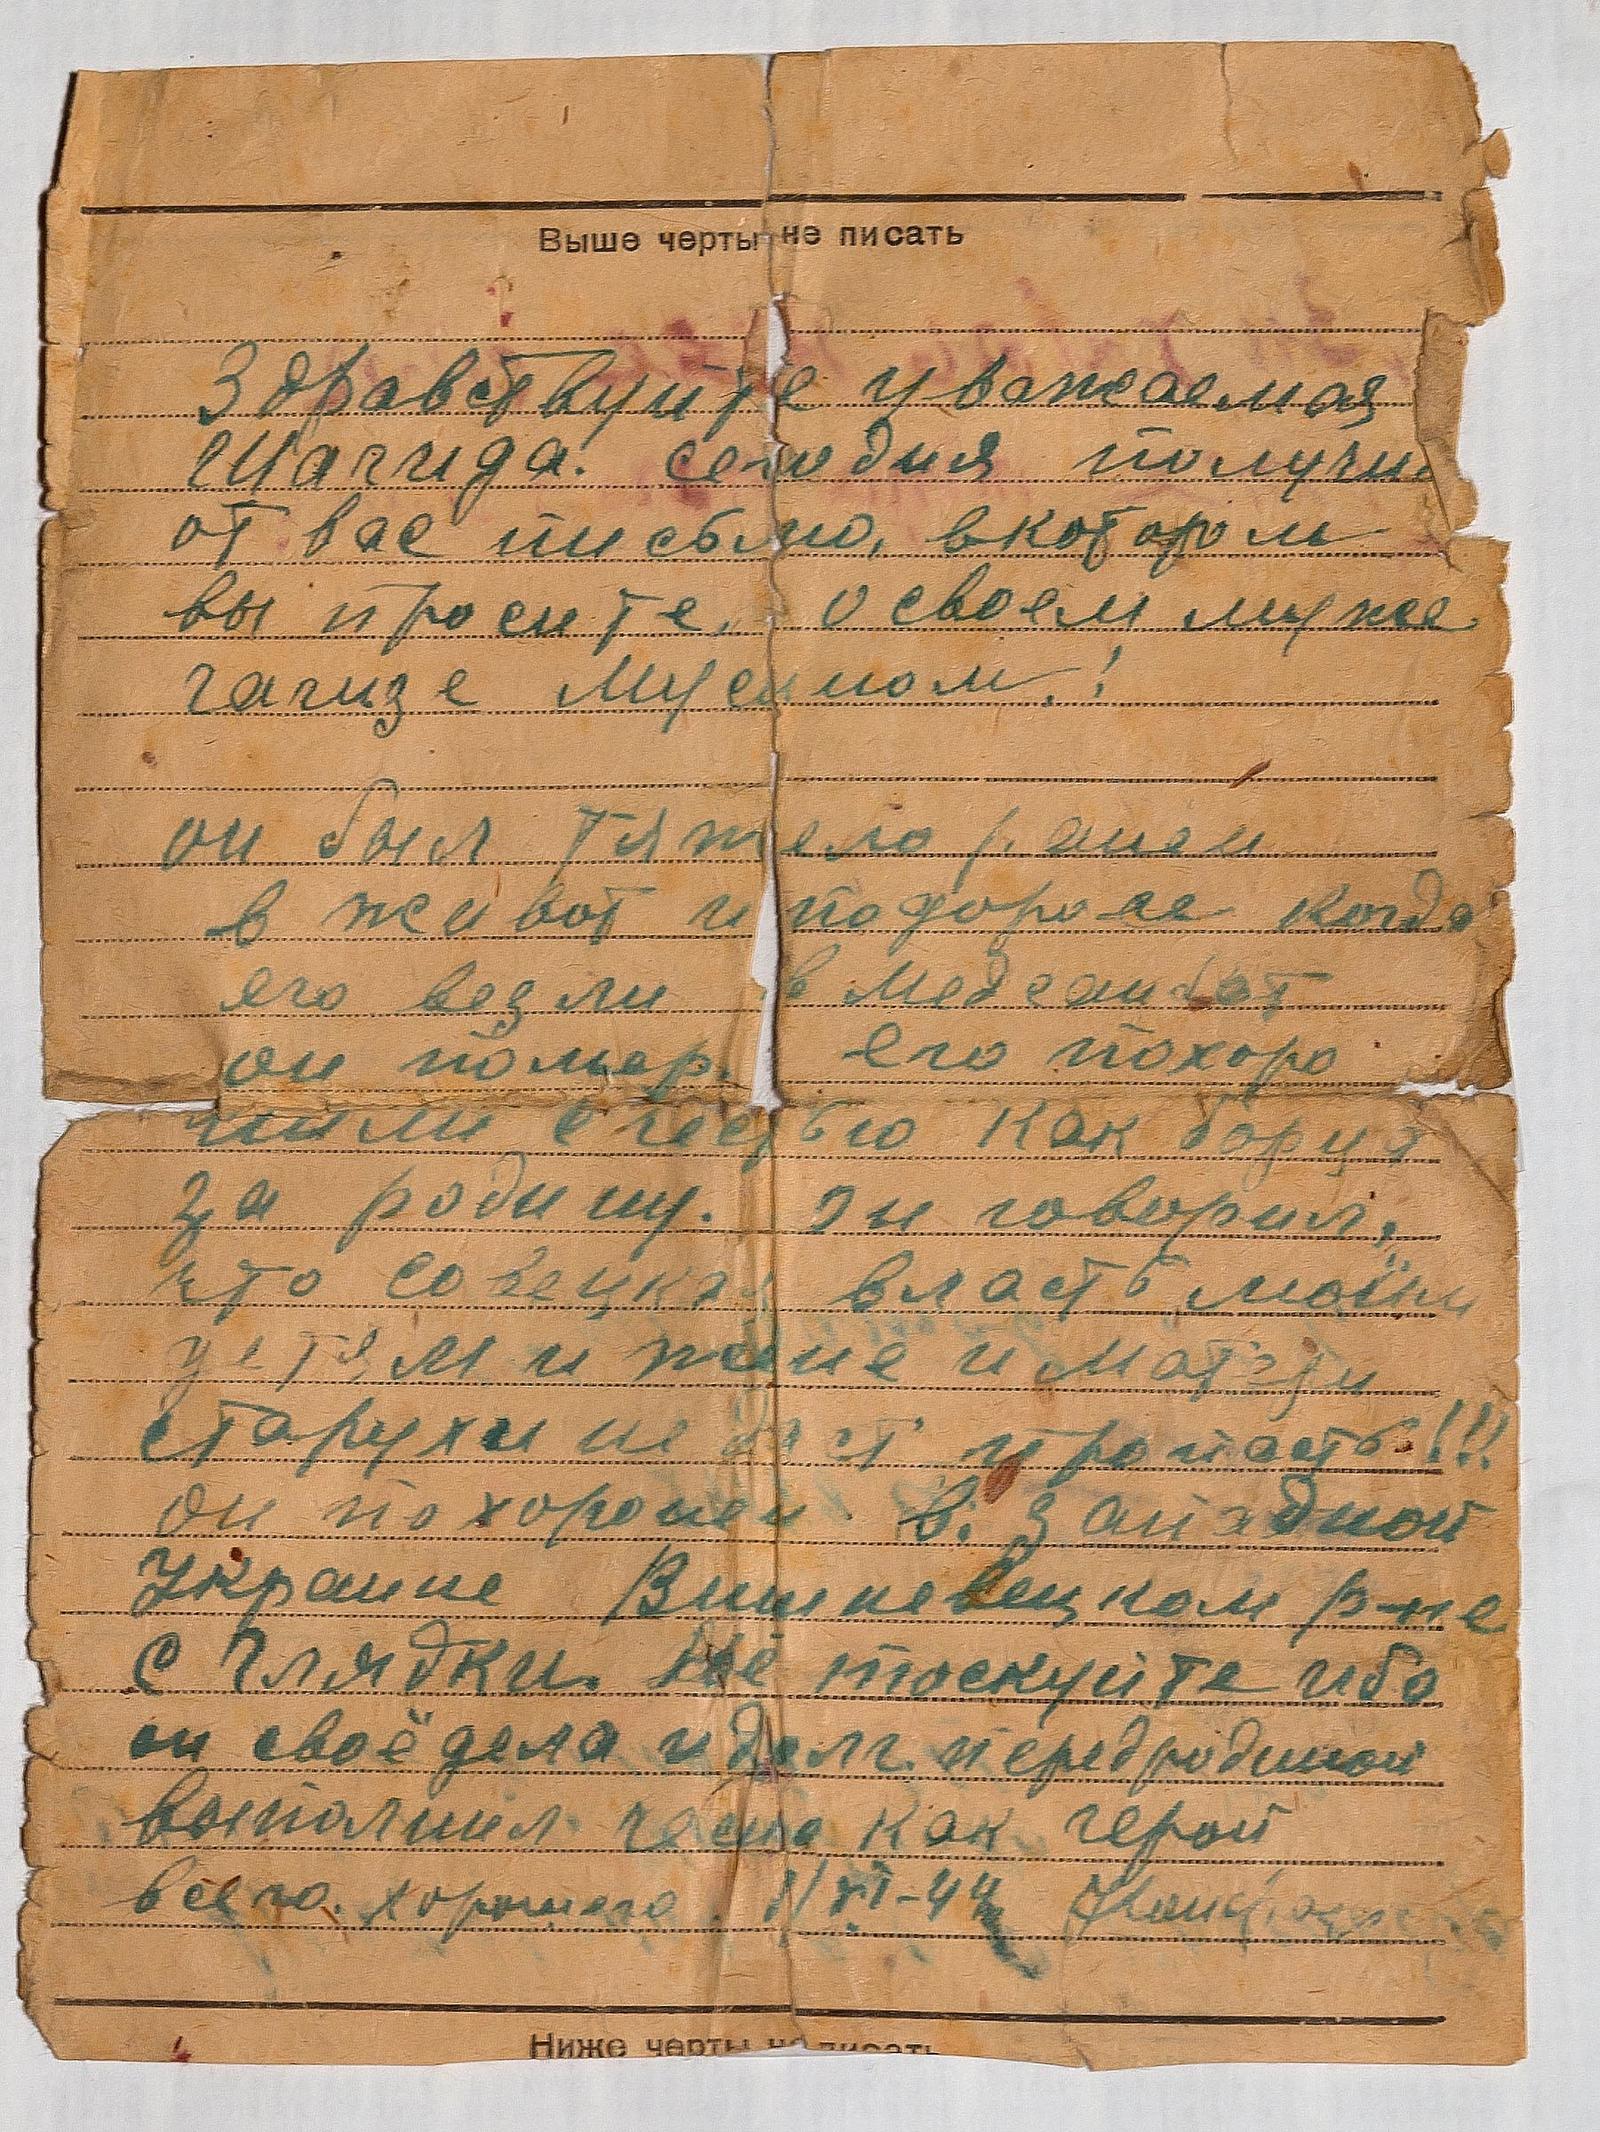 Выше черты не писать
Здравствуйте уважаемая
Шагида. сегодня получил
от вас письмо, в котором
вы просите, о своем муже
гагизе Мусином.!
он был тяжело ранен
в живот и подороге когда
его везли в медсанбат
он помер. его похоро
нили с честью как борца
за родину. Он говорил,
что совецкая власть моим
детям и жене и матери
старухи не даст пропасть!!!
он похоронен в. западной
Украине Вишневецком р-не
с Глядки. Не тоскуйте ибо
он своё дела и долг перед родиной
выполнил чесно как герой
всего. хорошего.
Ниже черты не писать